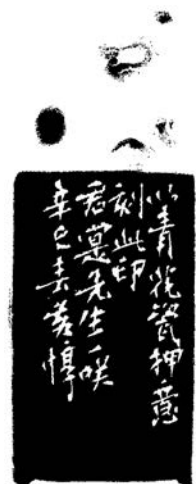 以青花瓷押意
刻此印
君寔先生一咲
辛巳春黃惇